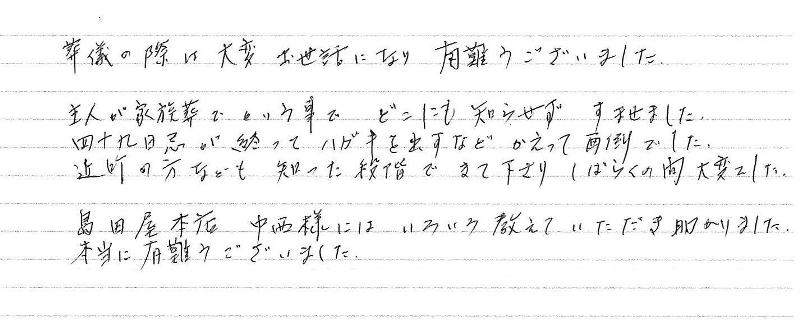 葬儀の際は大変お世話になり有難うございました.
主人が家族葬でという事で どこにも知らせず すませました.
四十九日忌が終って ハガキを出すなど かえって面倒でした.
近所の方なども 知った段階で きて下さり しばらくの間大変でした.
島田屋本店 中西様には いろいろ教えていただき助かりました.
本当に有難うございました.